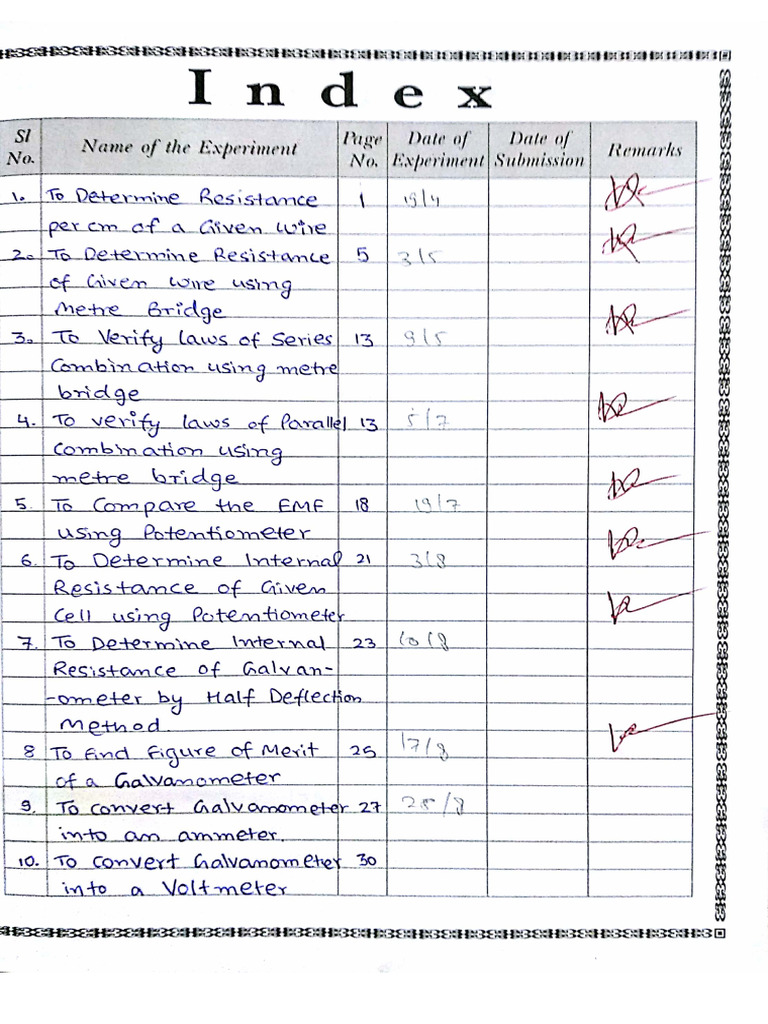 Index
Sl No. Name of the Experiment Page No. Date of Experiment Date of Submission Remarks
1. To Determine Resistance 1 19/4
per cm of a Given Wire
2. To Determine Resistance 5 3/5
of Given Wire using
Metre Bridge
3. To Verify laws of Series 13 9/5
Combination using metre
bridge
4. To verify laws of Parallel 13 5/7
Combination using
metre bridge
5. To Compare the EMF 18 19/7
using Potentiometer
6. To Determine Internal 21 3/8
Resistance of Given
Cell using Potentiometer
7. To Determine Internal 23 10/8
Resistance of Galvan-
-ometer by Half Deflection
Method.
8 To find figure of Merit 25 17/8
of a Galvanometer
9. To convert Galvanometer 27
into an ammeter.
10. To convert Galvanometer 30
into a Voltmeter